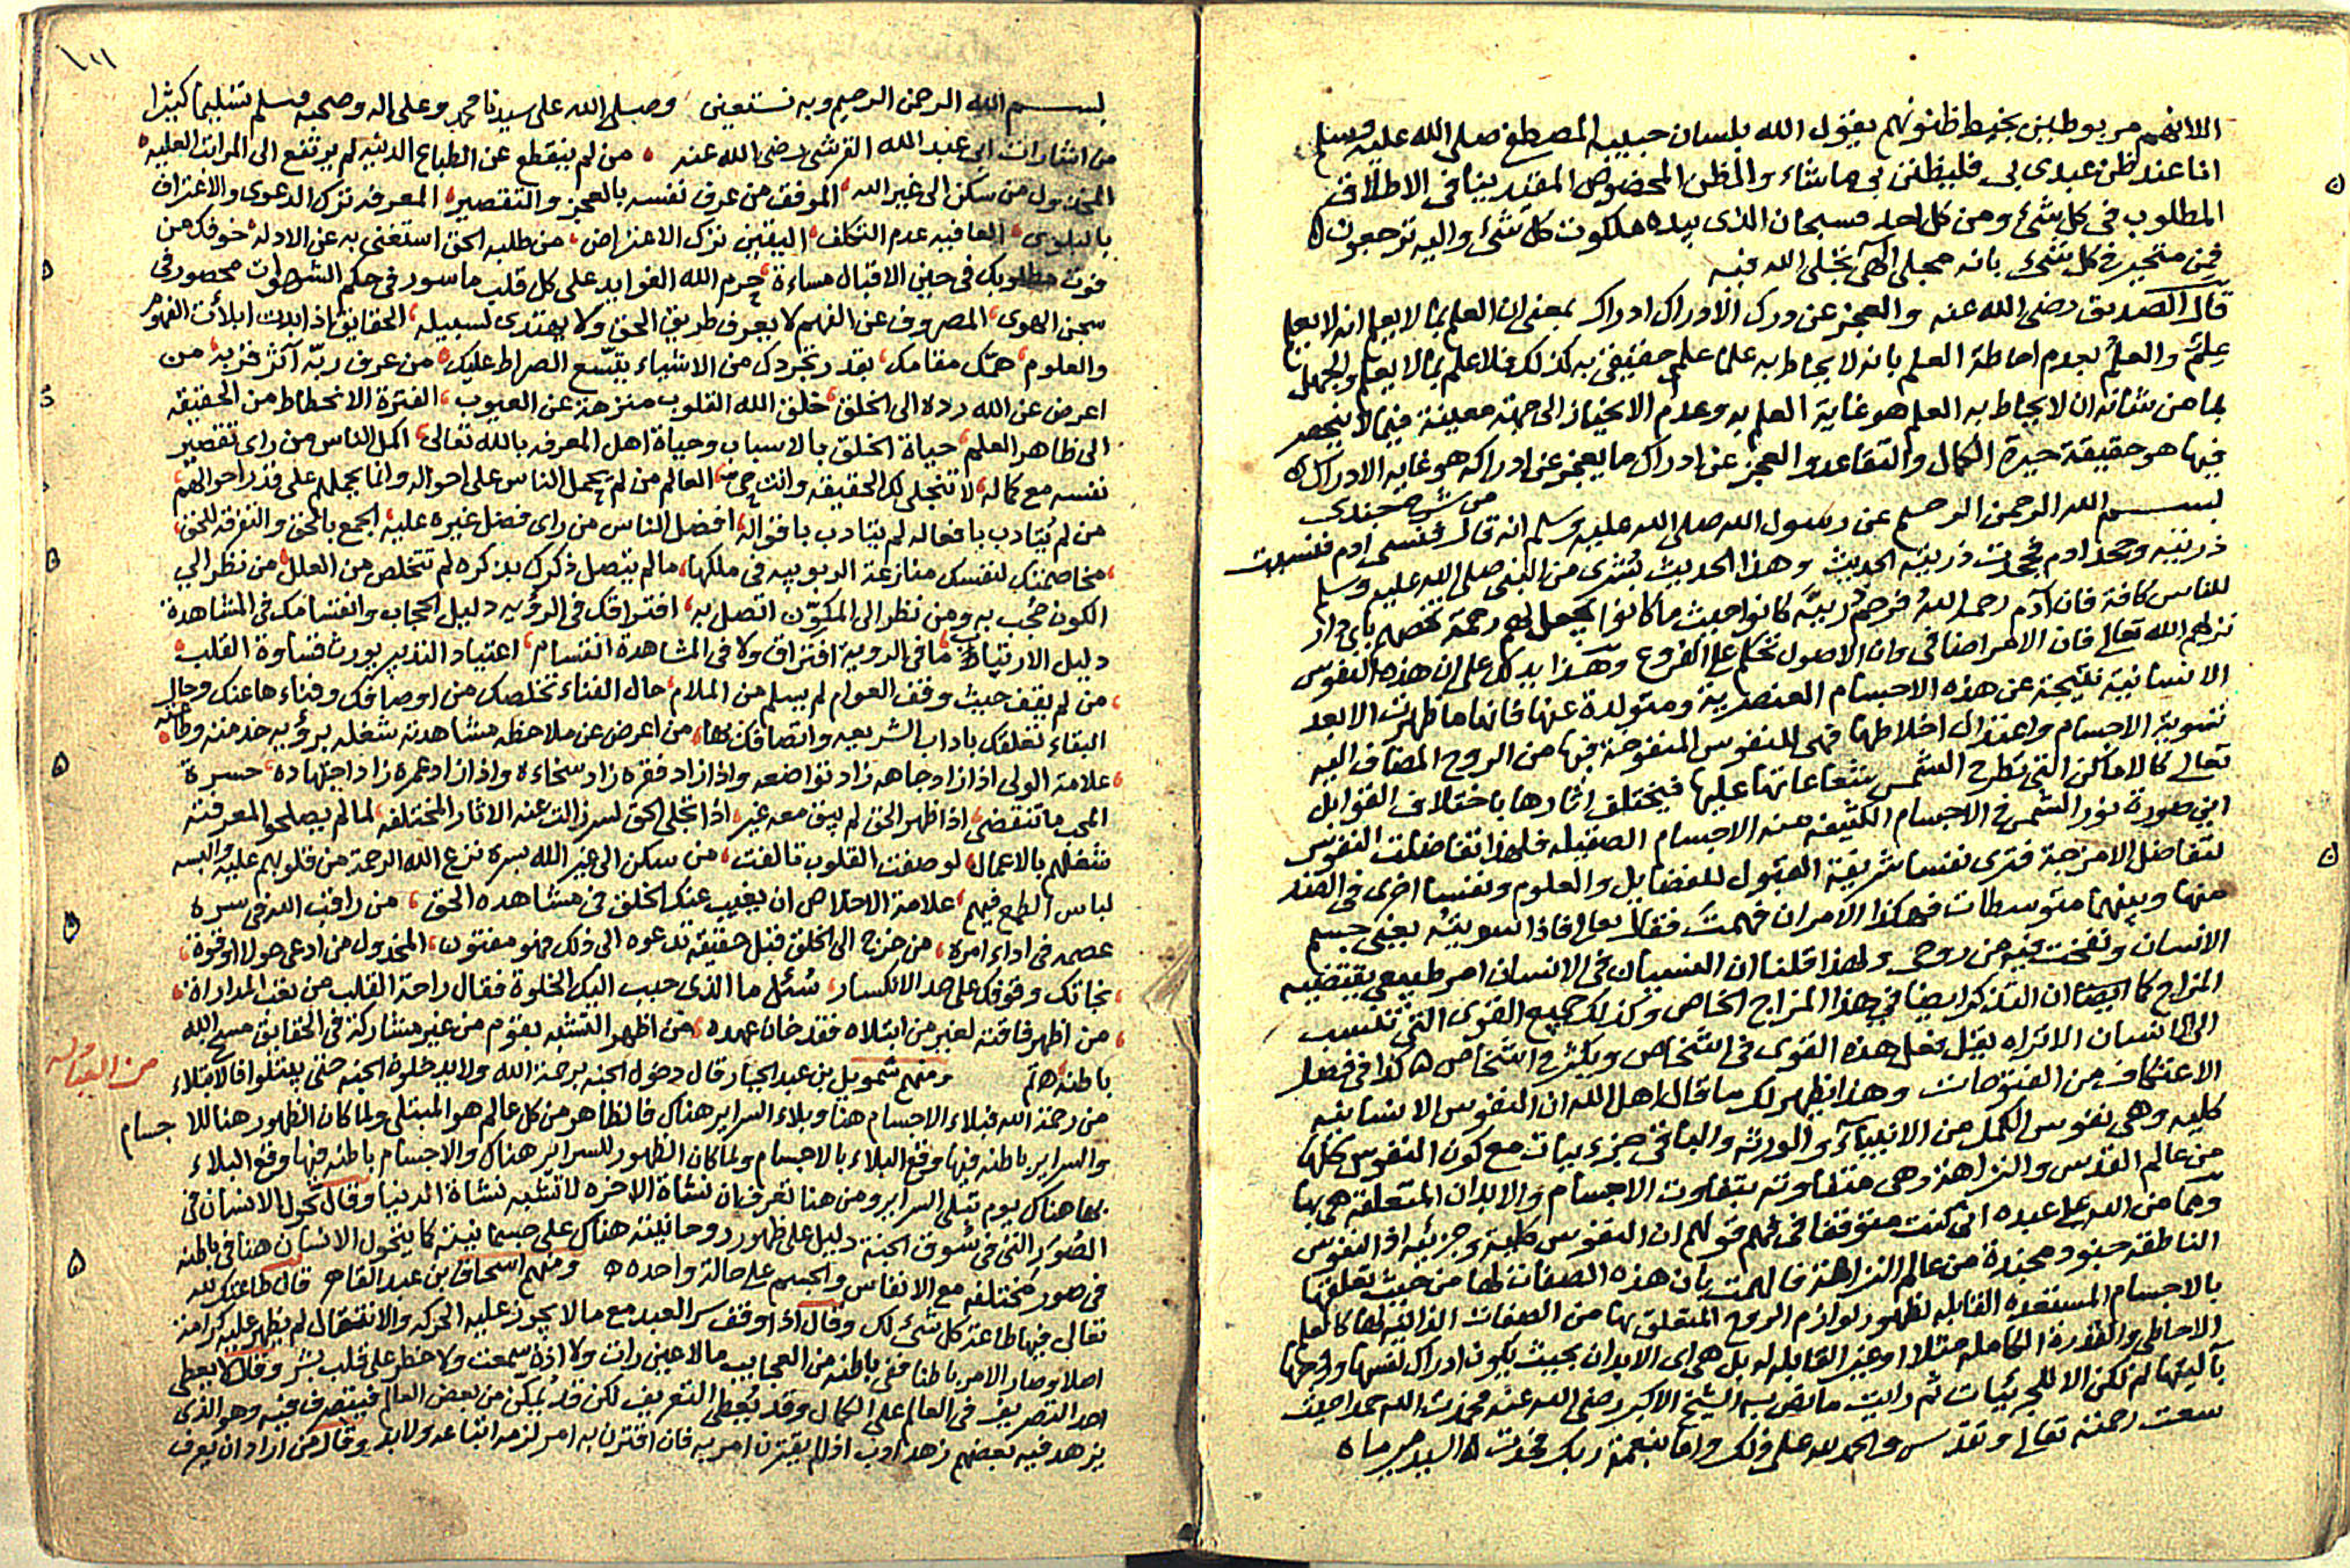 اللانهم مربوطين بخيط ظنونهم يقول الله بلسان حبيبه المصطفى صلى الله عليه وسلم
انا عند ظن عبدى بى فليظنن بى ما شاء والظن المخصوص المقيد ينافى الاطلاق
المطلوب فى كل شئ ومن كل احد فسبحان الذى بيده ملكوت كل شئ واليه ترجعون
فمن متحير فى كل شئ بانه مجلى الهى تجلى الله فيه
قال الصديق رضى الله عنه والعجز عن درك الادراك ادراك بمعنى ان العلم بما لا يعلم انه لا يعلم
علم والعلم بعدم احاطة العلم بانه لا يحاط به علما علم حقيقى به كذلك فلا علم بما لا يعلم والجهل
بما من شانه ان لا يحاط به العلم هو غاية العلم به وعدم الانحياز الى جهة معينة فيما لا ينحصر
فيها هو حقيقة حيرة الكمال والتقاعد والعجز عن ادراك ما يعجز عن ادراكه هو غاية الادراك
من شرح جندى
بسم الله الرحمن الرحيم عن رسول الله صلى الله عليه وسلم انه قال فنسى ادم فنسيت
ذريته وجحد ادم فجحدت ذريته الحديث وهذا الحديث بشرى من النبى صلى الله عليه وسلم
للناس كافة فان آدم رحمه الله فرحم ذريته كانوا حيث ما كانوا لجعل لهم رحمة تخصهم باى دار
نزلهم الله تعالى فان الامر اضافى وان الاصول تحكم على الفروع وهذا يدلك على ان هذه النفوس
الانسانية نتيجة عن هذه الاجسام العنصرية ومتولدة عنها فانها ما ظهرت الا بعد
تسوية الاجسام واعتدال اخلاطها فهى للنفوس المنفوخة فيها من الروح المضاف اليه
تعالى كالاماكن التى تطرح الشمس شعاعاتها عليها فيختلف اثارها باختلاف القوابل
اين صورة نور الشمس فى الاجسام الكثيفة منه الاجسام الصقيلة فلهذا تفاضلت النفوس
لتفاضل الامزجة فترى نفسا شريفة القبول للفضايل والعلوم ونفسا اخرى فى الضد
منها وبينهما متوسطات فهكذا الامر ان فهمت فقال تعالى فاذا سويته يعنى جسم
الانسان ونفخت فيه من روحى ولهذا قلنا ان النسيان فى الانسان امر طبيعى يقتضيه
المزاج كما ايضا ان التذكر ايضا فى هذا المزاج الخاص وكذلك جميع القوى التى تنسب
الى الانسان الا تراه يقل فعل هذه القوى فى اشخاص ويكثر فى اشخاص كذا فى فصل
الاعتكاف من الفتوحات وهذا يظهر لك ما قال اهل الله ان النفوس الانسانية
كليه وهى نفوس الكمل من الانبياء والورثه والباقى جزءيات مع كون النفوس كلها
من عالم القدس والنزاهة وهى متفاوته بتفاوت الاجسام والابدان المتعلقه هى بها
ومما من الله على عبده انى كنت متوقفا فى فهم قولهم ان النفوس كلية وجزئيه اذ النفوس
الناطقه جنود مجندة من عالم النزاهة فالهمت بان هذه الصفات لها من حيث تعلقها
بالاجسام المستعده القابله لظهور لوازم الروح المتعلق بها من الصفات الذاتيه لها كالعلم
الاحاطى والقدرة الكامله مثلا او غير القابله له بل هى اى الابدان بحيث يكون ادراك نفسها وروحها
بآليتها لم تكن الا للجزئيات ثم رايت ما نص به الشيخ الاكبر رضى الله عنه فحمدت الله حمدا حيث
سعت رحمته تعالى وتقدس والحمد لله على ذلك واما بنعمة ربك فحدث السيد مير ماه
بسم الله الرحمن الرحيم وبه نستعين وصلى الله على سيدنا محمد وعلى اله وصحبه وسلم تسليما كثيرا
من اشارات ابى عبد الله القرشى رضى الله عنه من لم ينقطع عن الطباع الدنيه لم يرتفع الى المراتب العليه
المخذول من سكن الى غير الله الموفق من عرف نفسه بالعجز والتقصير المعرفه ترك الدعوى والاعتراف
بالبلوى العافيه عدم التكلف اليقين ترك الاعتراض من طلبه الحق استغنى به عن الادله خوفك من
فوت مطلوبك فى حين الاقبال مساءة حرم الله الفوايد على كل قلب ماسور فى حكم الشهوات محصور فى
سجن الهوى المصروف عن الفهم لا يعرف طريق الحق ولا يهتدى لسبيله الحقايق اذا بدت ابلأت الفهوم
والعلوم همك مقامك بقدر تجردك من الاشياء يتسع الصراط عليك من عرف ربه آثر قربه من
اعرض عن الله رده الى الخلق خلق الله القلوب منزهة عن العيوب الفترة الانحطاط من الحقيقه
الى ظاهر العلم حياة الخلق بالاسباب وحياة اهل المعرفه بالله تعالى اكمل الناس من راى تقصير
نفسه مع كماله لا تتجلى لك الحقيقه وانت حى العالم من لم يحمل الناس على احواله وانما يحملهم على قدر احوالهم
من لم يُتادب بافعاله لم يتادب باقواله افضل الناس من راى فضل غيره عليه الجمع بالحق والتفرقه للحق
مخاصمتك لنفسك منازعة الربوبيه فى ملكها ما لم يتصل ذكرك بذكره لم تتخلص من العلل من نظر الى
الكون حُجب به ومن نظر الى المكوّن اتصل به افتراقك فى الرؤيه دليل الحجاب وانقسامك فى المشاهدة
دليل الارتياب ما فى الروية افتراق ولا فى المشاهدة انقسام اعتياد التدبير يورث قساوة القلب
من لم يقف حيث وقف العوام لم يسلم من الملام حال الفناء تخلصك من اوصافك وفناءها عنك وحال
البقاء تعلقك باداب الشريعه واتصافك بها من اعرض عن ملاحظه مشاهدته شغله برؤيه خدمته وطاعته
علامة الولى اذا زاد جاهه زاد تواضعه واذا زاد فقره زاد سخاءه واذا زاد عمره زاد اجتهاده حسرة
المحب ما تنقضى اذا ظهر الحق لم يبق معه غير اذا تجلى الحق لسر زالت عنه الاثار المختلفه لما لم يصلحوا لمعرفته
شغلهم بالاعمال لو صفت القلوب تالفت من سكن الى غير الله بسره نزع الله الرحمة من قلوبهم عليه والبسه
لباس الطمع فيهم علامة الاخلاص ان يغيب عنك الخلق فى مشاهده الحق من راقب الله فى سره
عصمه فى اداء امره من خرج الى الخلق قبل حقيقة تدعوه الى ذلك فهو مفتون المخذول من ادعى حولا او قوة
نجاتك وقوفك على حد الانكسار سُئل ما الذى حبب اليك الخلوة فقال راحة القلب من تعب المداراة
من اظهر فاقته لغير من ابتلاه فقد خان عهده من اظهر التشبه بقوم من غير مشاركة فى الحقايق مسخ الله
باطنه ومنهم شمويل بن عبد الجبار قال دخول الجنه برحمة الله ولا بد خلوة الجنه حتى يبتلوا فالابتلاء
من رحمة الله فبلاء الاجسام هنا وبلاء السراير هناك فالظاهر من كل عالم هو المبتلى ولما كان الظهور هنا للاجسام
والسراير باطنه فيها وقع البلاء بالاجسام ولما كان الظهور للسراير هناك والاجسام باطنه فيها وقع البلاء
بها هناك يوم تبلى السراير ومن هنا تعرف ان نشاة الاخره لا تشبه نشاة الدنيا وقال تحول الانسان فى
الصُوَر التى فى سُوق الجنة دليل على ظهور روحانيته هناك على جسمانيته كما يتحول الانسان هنا فى باطنه
فى صور مختلفه مع الانفاس والجسم على حالة واحده ومنهم اسحاق بن عبد القاهر قال طاعتك لله
تعالى فيها طاعة كل شئ لك وقال اذا وقف سر العبد مع ما لا يجوز عليه الحركه والانتقال لم يظهر عليه كرامة
اصلا وصار الامر باطنا ففى باطنه من العجايب ما لا عين رات ولا اذن سمعت ولا خطر على قلب بشر وقال لا يعطى
احد التصريف فى العالم على الكمال وقد يُعطى التعريف لكن قد يُمكن من بعض العالم فيتصرف فيه وهو الذى
يزهد فيه بعضهم زهد ادب اذا لم يقترن امر به فان اقترن به امر لزمه اتباعه ولا بد وقال من اراد ان يعرف